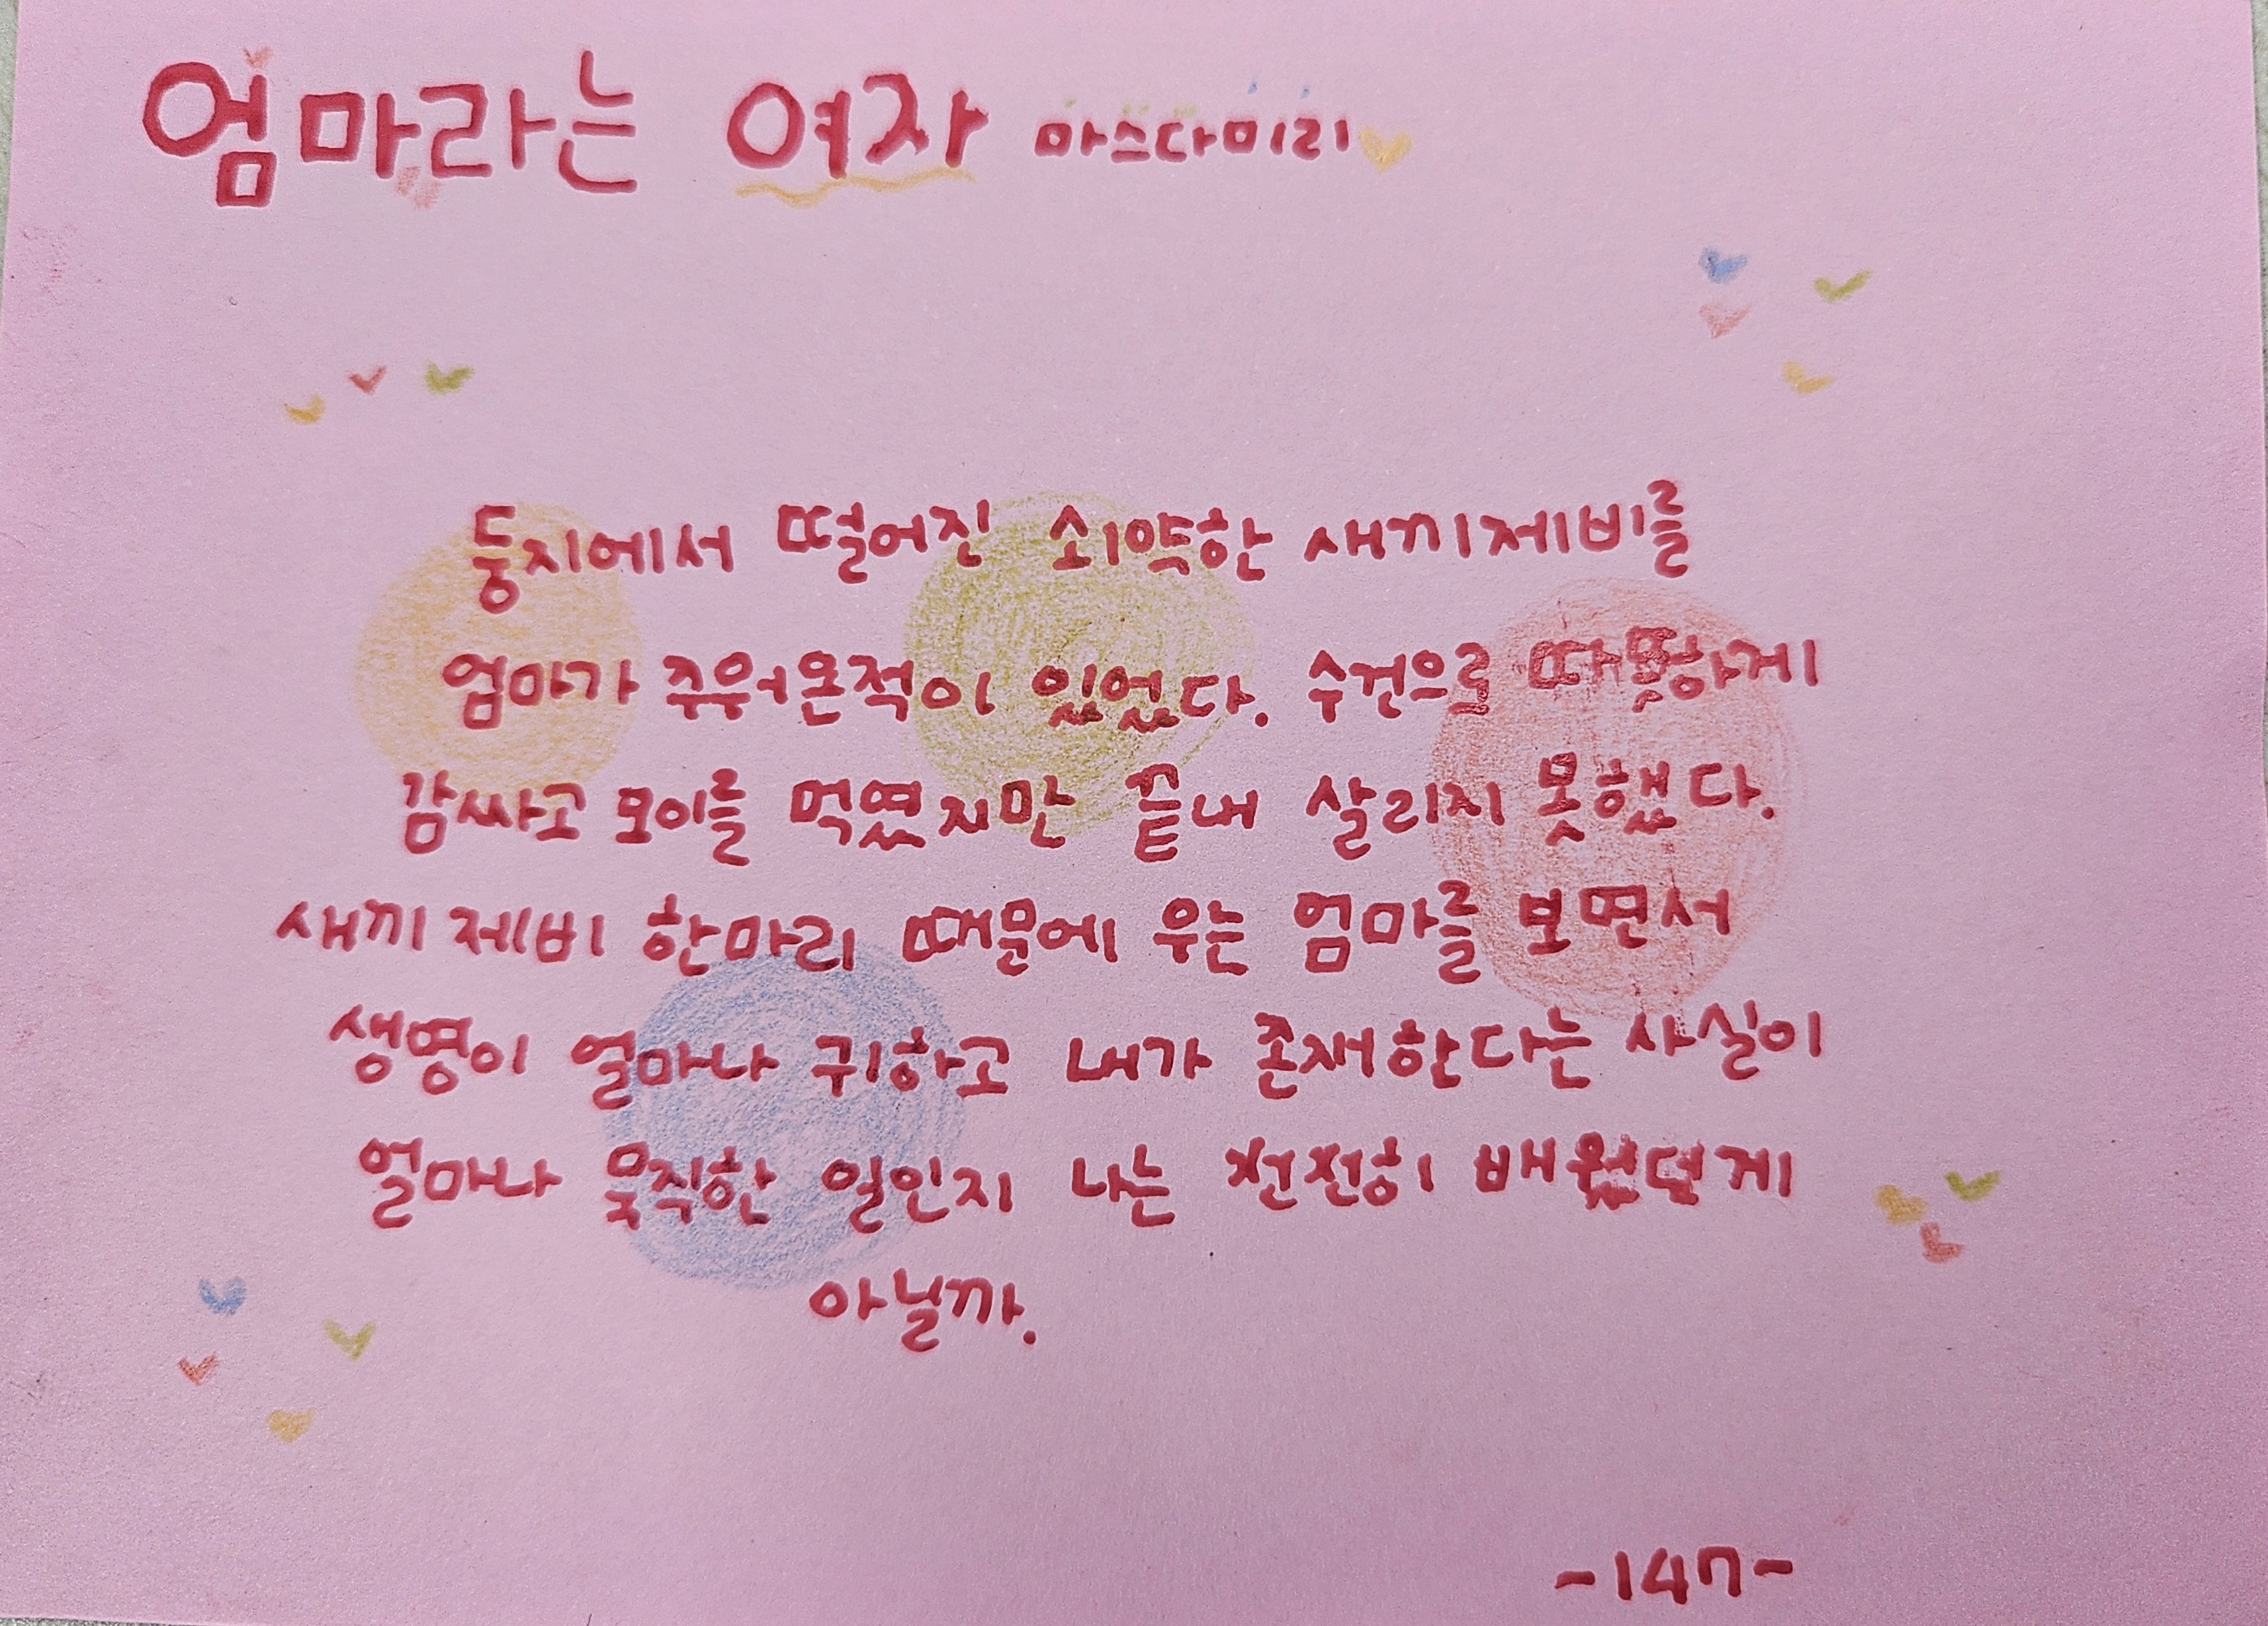 엄마라는 여자 마스다미리
둥지에서 떨어진 쇠약한 새끼제비를
엄마가 주워온적이 있었다. 수건으로 따뜻하게
감싸고 모이를 먹였지만 끝내 살리지 못했다.
새끼 제비 한마리 때문에 우는 엄마를 보면서
생명이 얼마나 귀하고 내가 존재한다는 사실이
얼마나 묵직한 일인지 나는 천천히 배웠던게
아닐까.
-147-